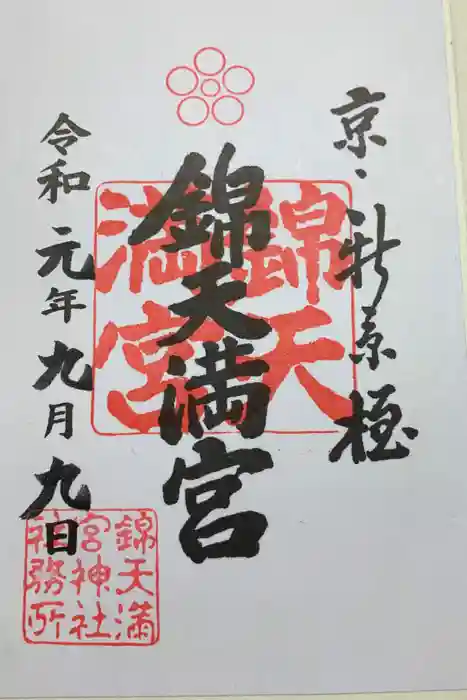 京・新京極
錦天満宮
令和元年九月九日
錦天
満宮
錦天満
宮神社
社務所